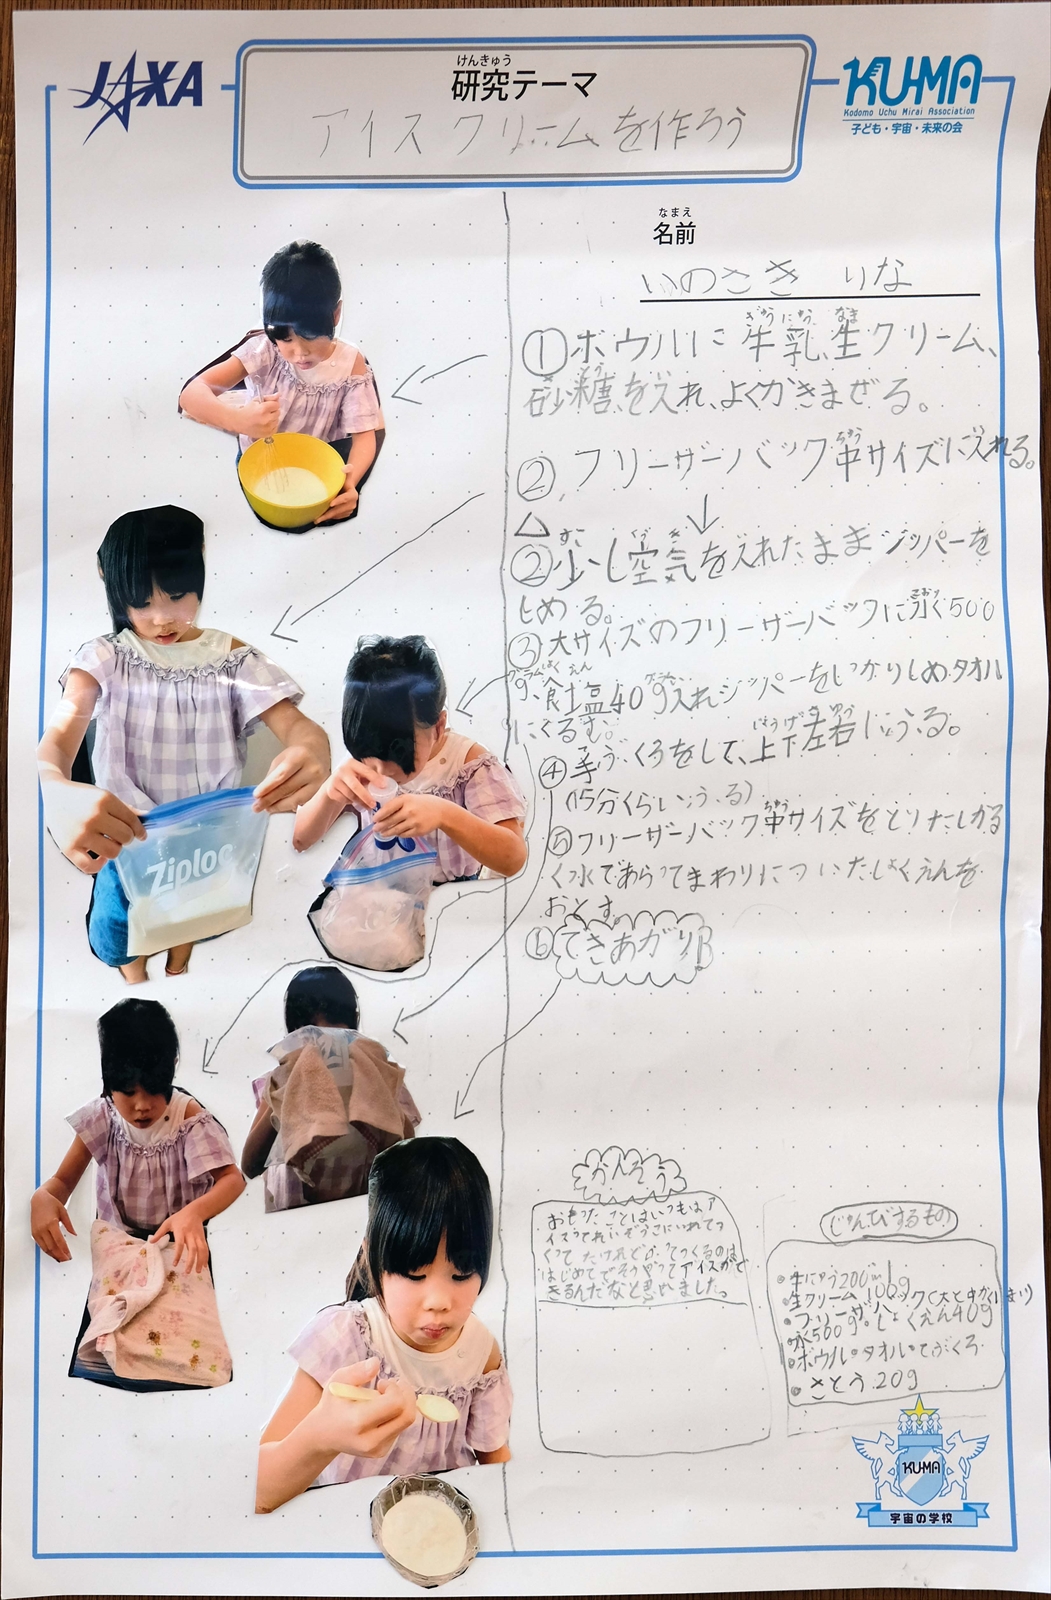 JAXA
けんきゅう
研究テーマ
アイスクリームを作ろう
KU-MA
Kodomo Uchu Mirai Association
子ども・宇宙・未来の会
なまえ
名前
いのさき りな
①ボウルに牛乳、生クリーム、
砂糖を入れ、よくかきまぜる。
②フリーザーバック中サイズに入れる。
②少し空気を入れたままジッパーを
しめる。
③大サイズのフリーザーバックに氷500
g、食塩40g入れジッパーをしっかりしめタオル
にくるむ。
④手ぶくろをして、上下左右にふる。
(15分くらいふる)
⑤フリーザーバック中サイズをとりだしかる
く水であらってまわりについたしょくえんを
おとす。
⑥できあがり
Ziploc
かんそう
おもったことはいつもはア
イスってれいぞうこにいれてつ
くってたけれどが、てつくるのは
はじめてでそうやってアイスがで
きるんだなと思いました。
じゅんびするもの
・牛にゅう200ml
・生クリーム100g
・フリーザーバック(大と中
・氷500g・しょくえん40g
・ボウル・タオル・てぶくろ
・さとう20g
KU-MA
宇宙の学校